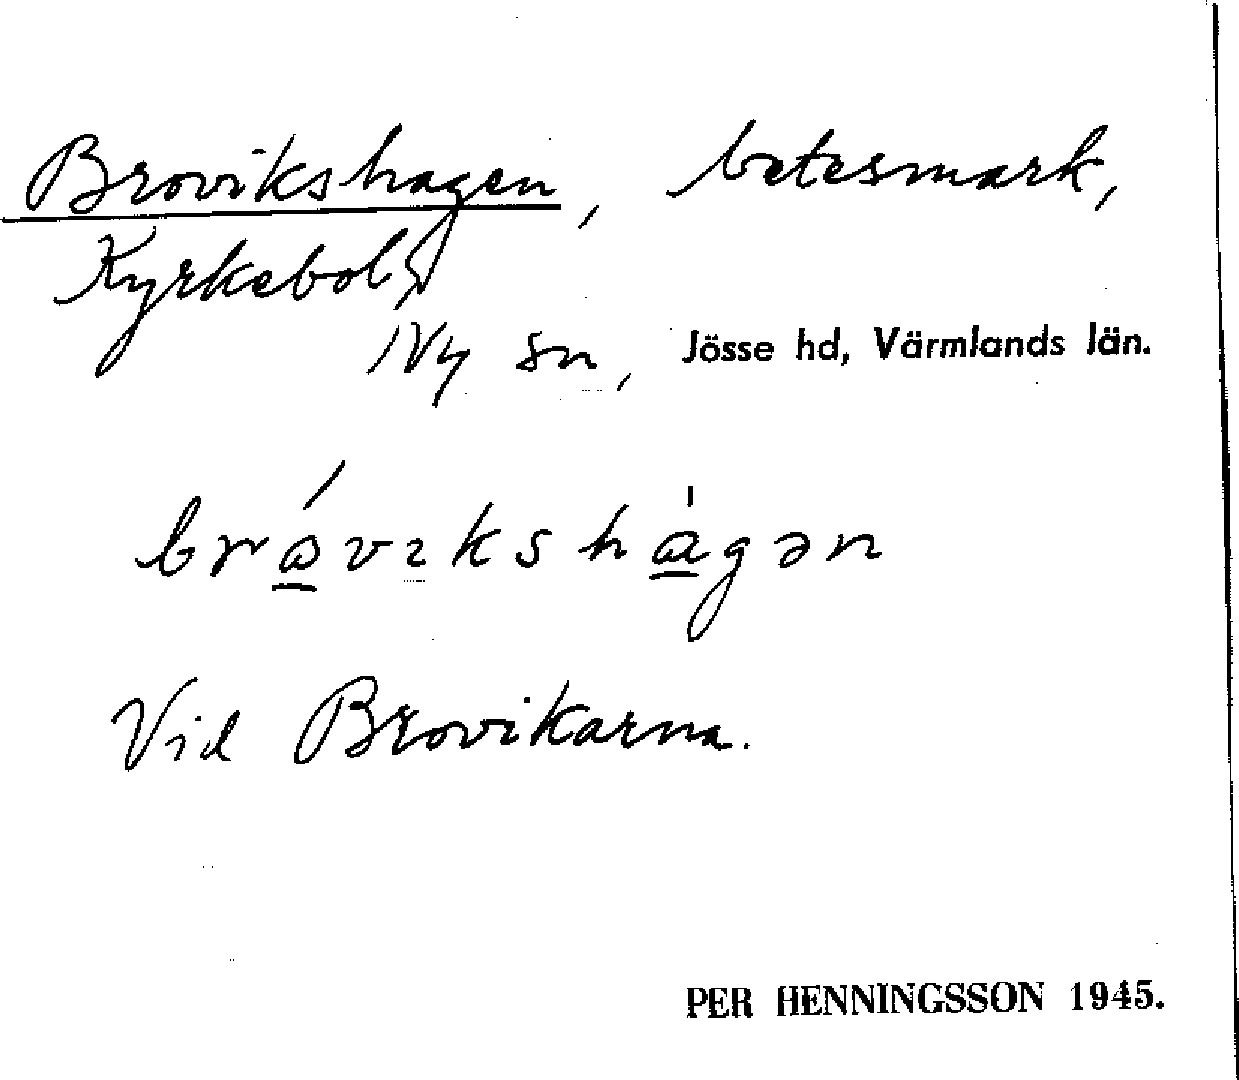 Brovikshagen, betesmark,
Kyrkebol,
Ny sn, Jösse hd, Värmlands län.
brovikshagən
Vid Brovikarna.
PER HENNINGSSON 1945.